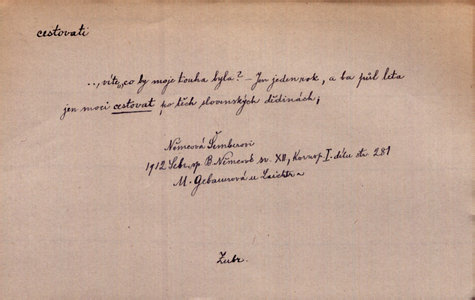 cestovati
..., víte, co by moje touha byla? – Jen jeden rok, a ba půl leta
jen moci cestovat po těch slovenských dědinách;
Němcová Šemberovi
1912 Sebr. sp. B. Němcové sv. XII, Koresp. I. dílu str. 281
M. Gebauerová u Laichtra
Zubr.